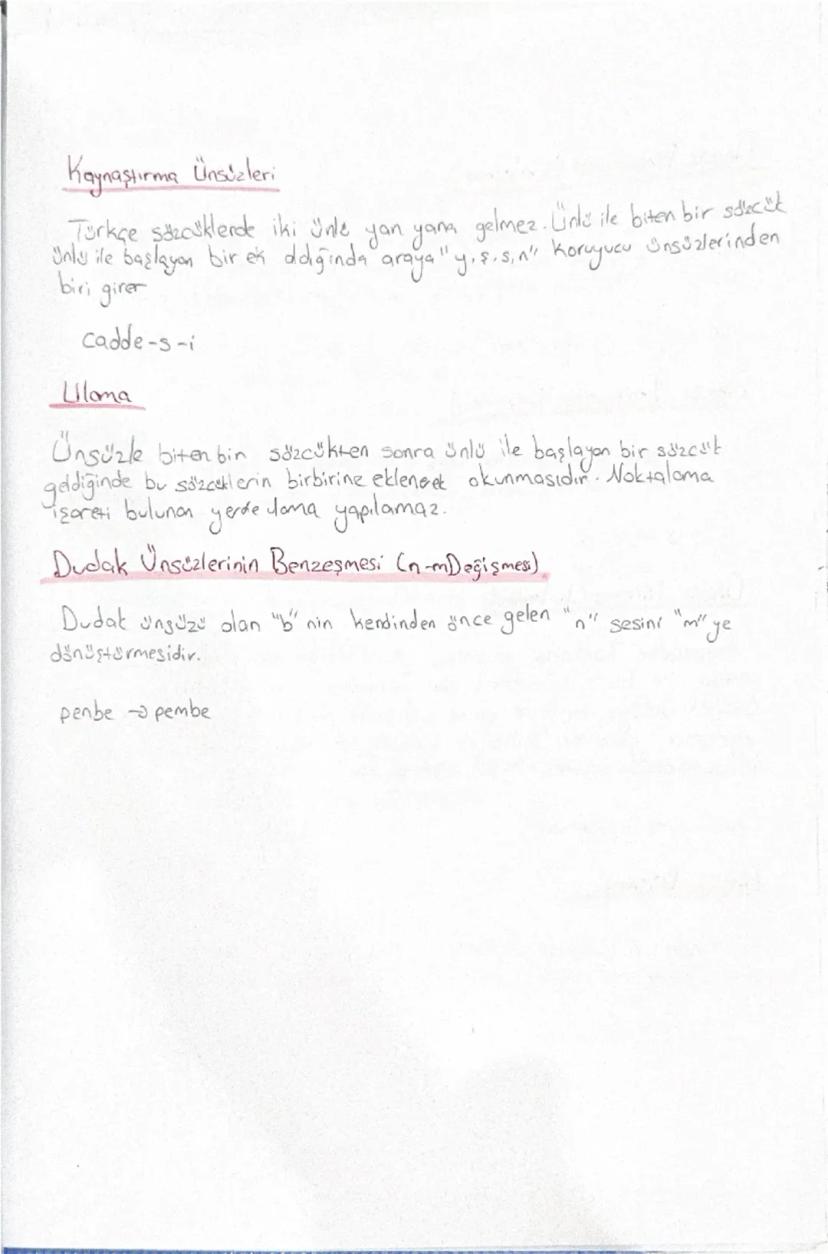 Kaynaştırma Ünsüzleri
Türkçe sözcüklerde iki ünlü yan yana gelmez. Ünlü ile biten bir sözcük
ünlü ile başlayan bir ek aldığında araya "y, ş, s, n" koruyucu ünsüzlerinden
biri girer
cadde-s-i
Ulama
Ünsüzle biten bin sözcükten sonra ünlü ile başlayan bir sözcük
geldiğinde bu sözcüklerin birbirine eklenerek okunmasıdır. Noktalama
işareti bulunan yerde ulama yapılamaz.
Dudak Ünsüzlerinin Benzeşmesi (n-mDeğişmesi)
Dudak ünsüzü olan "b" nin kendinden önce gelen "n" sesini "m" ye
dönüştürmesidir.
penbe → pembe